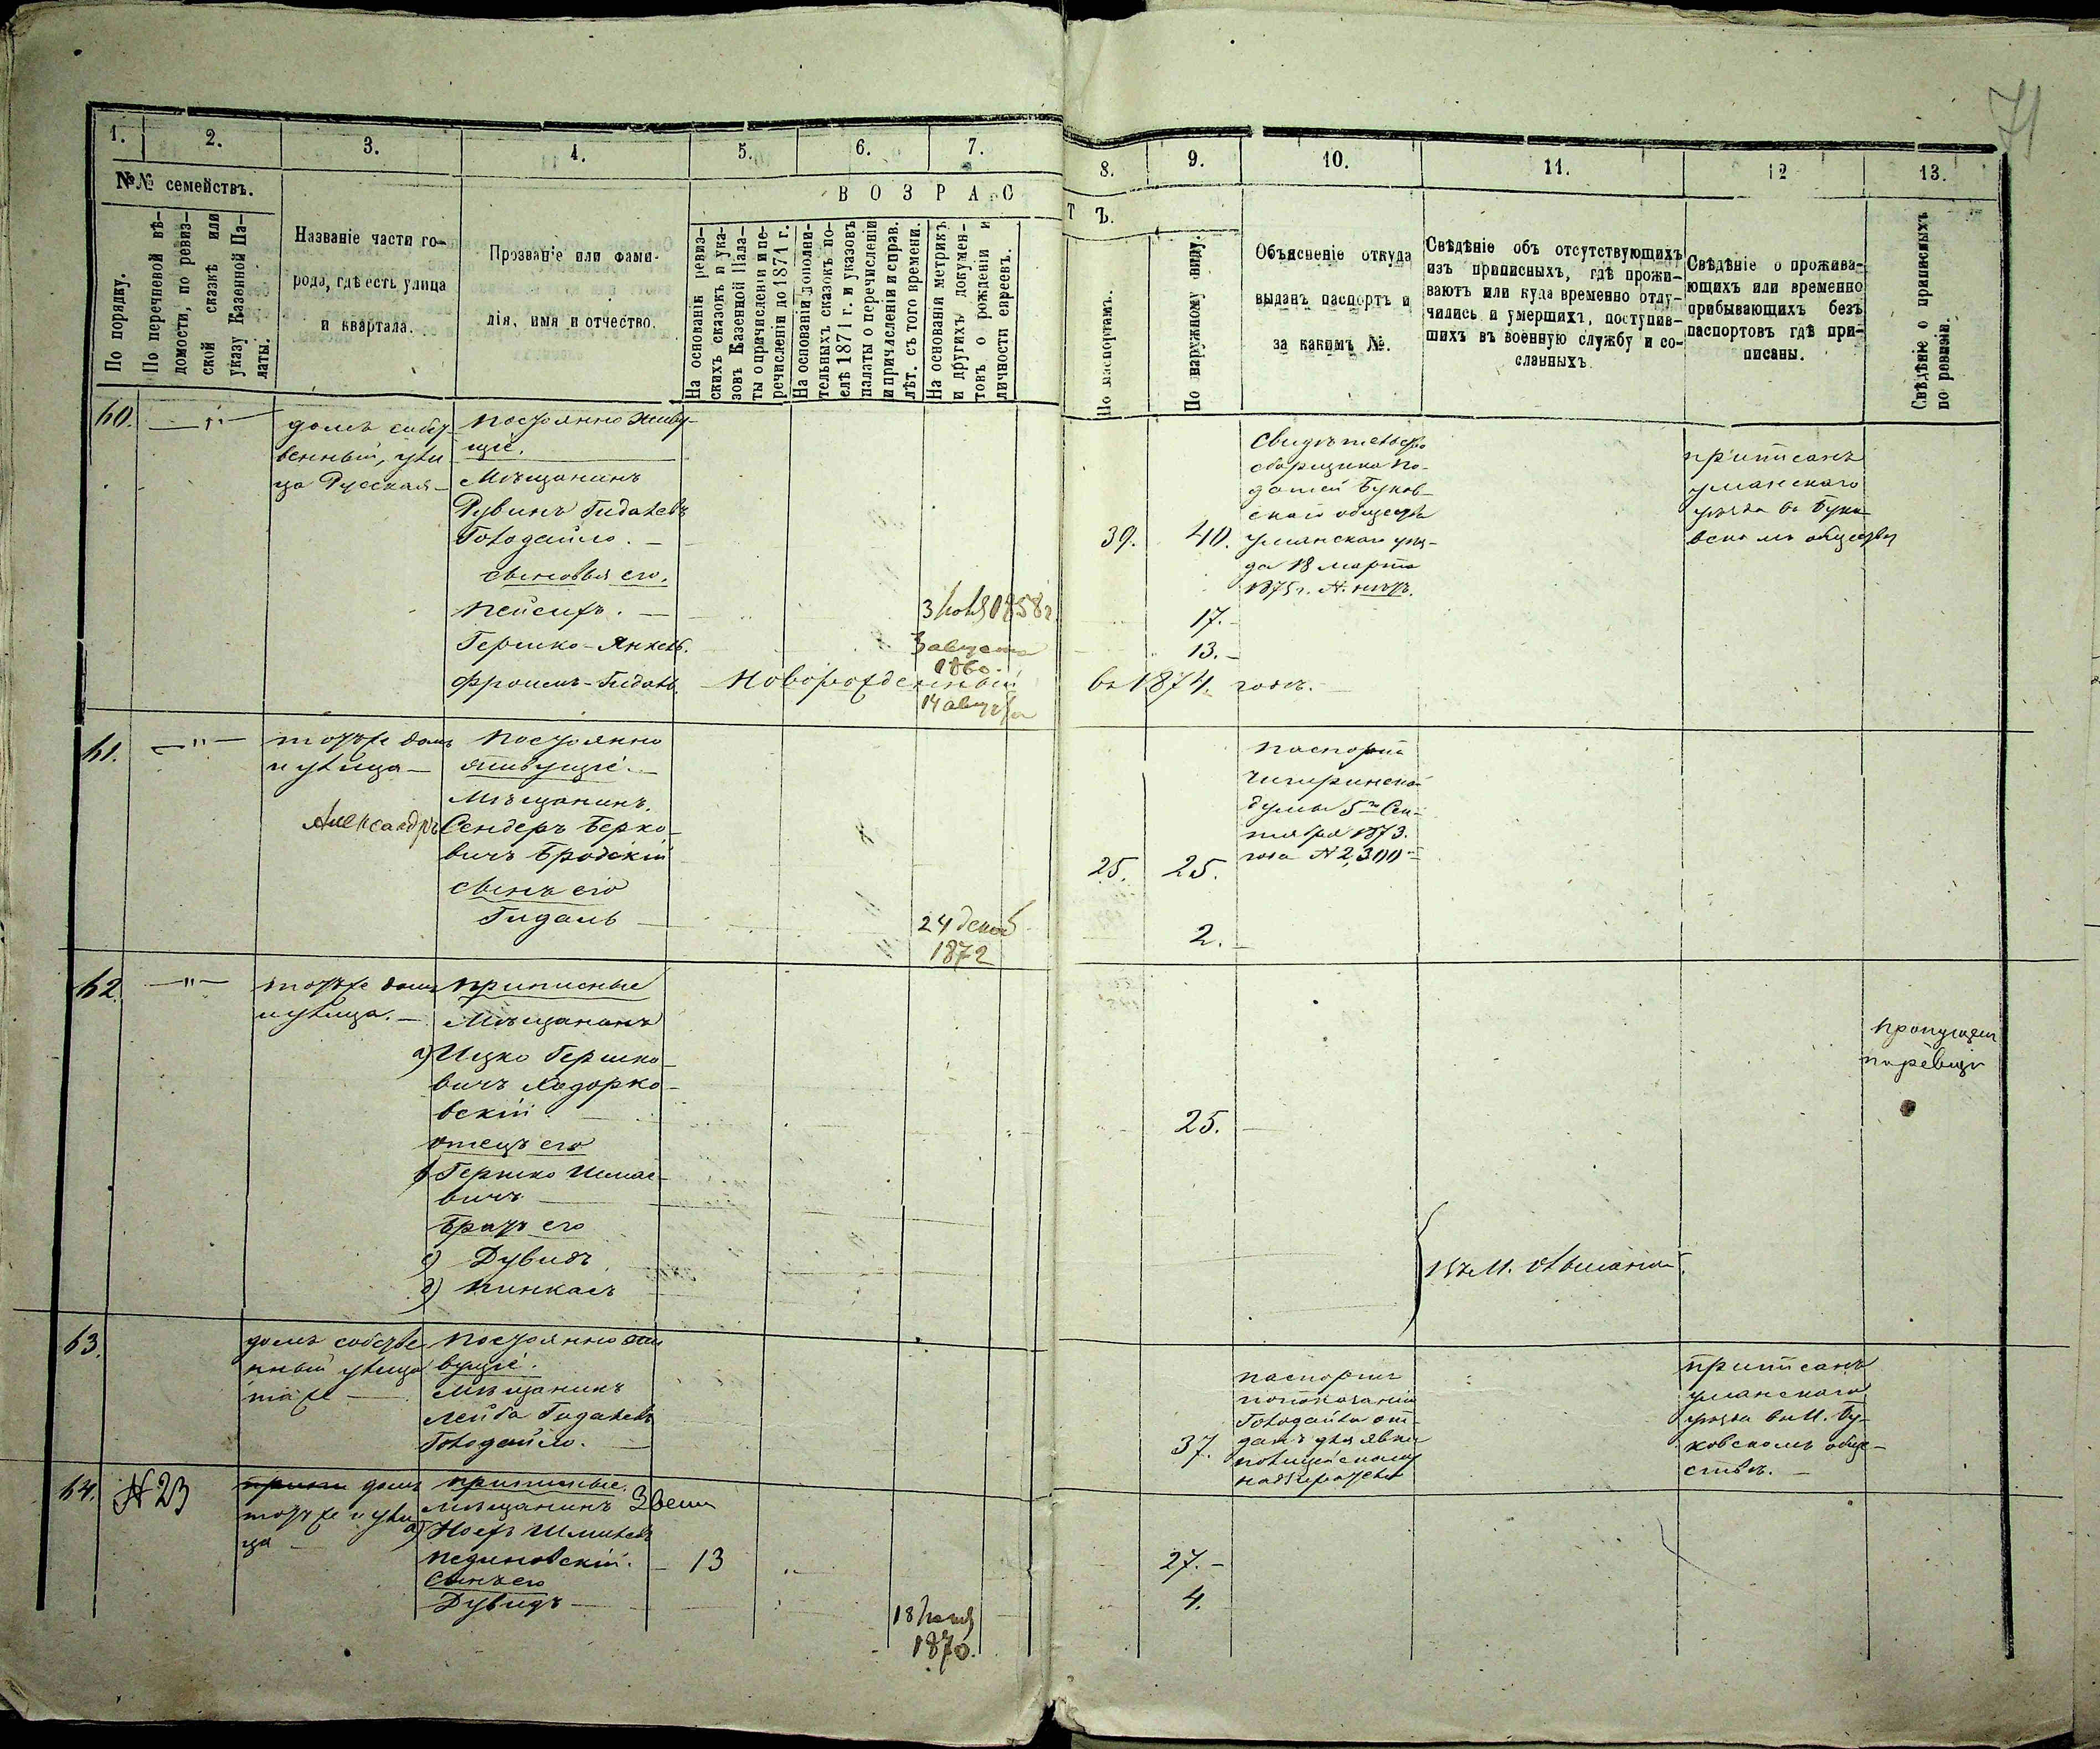 71
1.
2.
3.
4.
5.
6.
7.
8.
9.
10.
11.
12
13.
№№ семействъ.
По порядку.
По перечневой вѣ-
домости, по ревиз-
ской сказкѣ или
указу Казенной Па-
латы.
Названіе части го-
рода, гдѣ есть улица
и квартала.
Прозваніе или фами-
лія, имя и отчество.
ВОЗРАС
ТЪ.
На основаніи ревиз-
скихъ сказокъ и ука-
зовъ Казенной Пала-
ты о причисленіи и пе-
речисленіи до 1871 г.
На основаніи дополни-
тельныхъ сказокъ по-
слѣ 1871 г. и указовъ
палаты о перечисленіи
и причисленіи и справ.
лѣт. съ того времени.
На основаніи метрикъ
и другихъ докумен-
товъ о рожденіи и
личности евреевъ.
По паспортамъ.
По наружному виду.
Объясненіе откуда
выданъ паспортъ и
за какимъ №.
Свѣдѣніе объ отсутствующихъ
изъ приписныхъ, гдѣ прожи-
ваютъ или куда временно отлу-
чились и умершихъ, поступив-
шихъ въ военную службу и со-
сланныхъ
Свѣдѣніе о прожива-
ющихъ или временно
прибывающихъ безъ
паспортовъ гдѣ при-
писаны.
Свѣдѣніе о приписныхъ
по ревизіи.
60.
домъ собст
венный, ули
ца Русская
постоянно живу-
щіе.
Мѣщанинъ
Рувинъ Гидалевъ
Голодайло.
сыновья его.
Пейсихъ.
Гершко-Янкель.
Фроимъ-Гидаль
3 іюля 1858 г
3 августа
1860
Новорожденный
14 августа
въ 1874. годѣ.
39.
40.
17.
13.
Свидѣтельство
сборщика по-
датей Буков-
скаго общества
уманскаго уѣз-
да 18 марта
1875 г. №
приписанъ
уманскаго
уѣзда въ Буко
вскомъ обществѣ
61.
—"—
тотъ же домъ
и улица
Александръ
постоянно
живущіе.
Мѣщанинъ.
Сендеръ Берко-
вичъ Бродскій
сынъ его
Гидаль
24 декаб
1872
25.
25.
2.
паспортъ
чигиринской
думы 5го Сен-
тября 1873.
года № 2,300
62.
—"—
тотъ же домъ
и улица.
приписные
Мѣщанинъ
а) Ицко Гершко-
вичъ Ходорко-
вскій
отецъ его
Гершко
вичъ
Братъ его
с) Дувидъ
д) Пинкасъ
25.
въ М.
пропущен
по ревизіи
63.
домъ собстве
нный улица
та же
постоянно жи
вущіе.
Мѣщанинъ
Лейба Гидалевъ
Голодайло.
37.
паспортъ
по показанію
Голодайла от-
данъ для явки
полицейскому
надзирателю
приписанъ
уманскаго
уѣзда въ М. Бу-
ковскомъ обще-
ствѣ.
64.
№ 23
домъ
тотъ же и ули
ца
приписные.
мѣщанинъ
а) Іосъ Шмилевъ
Пединовскій.
сынъ его
Дувидъ
13
18
1870.
27.
4.